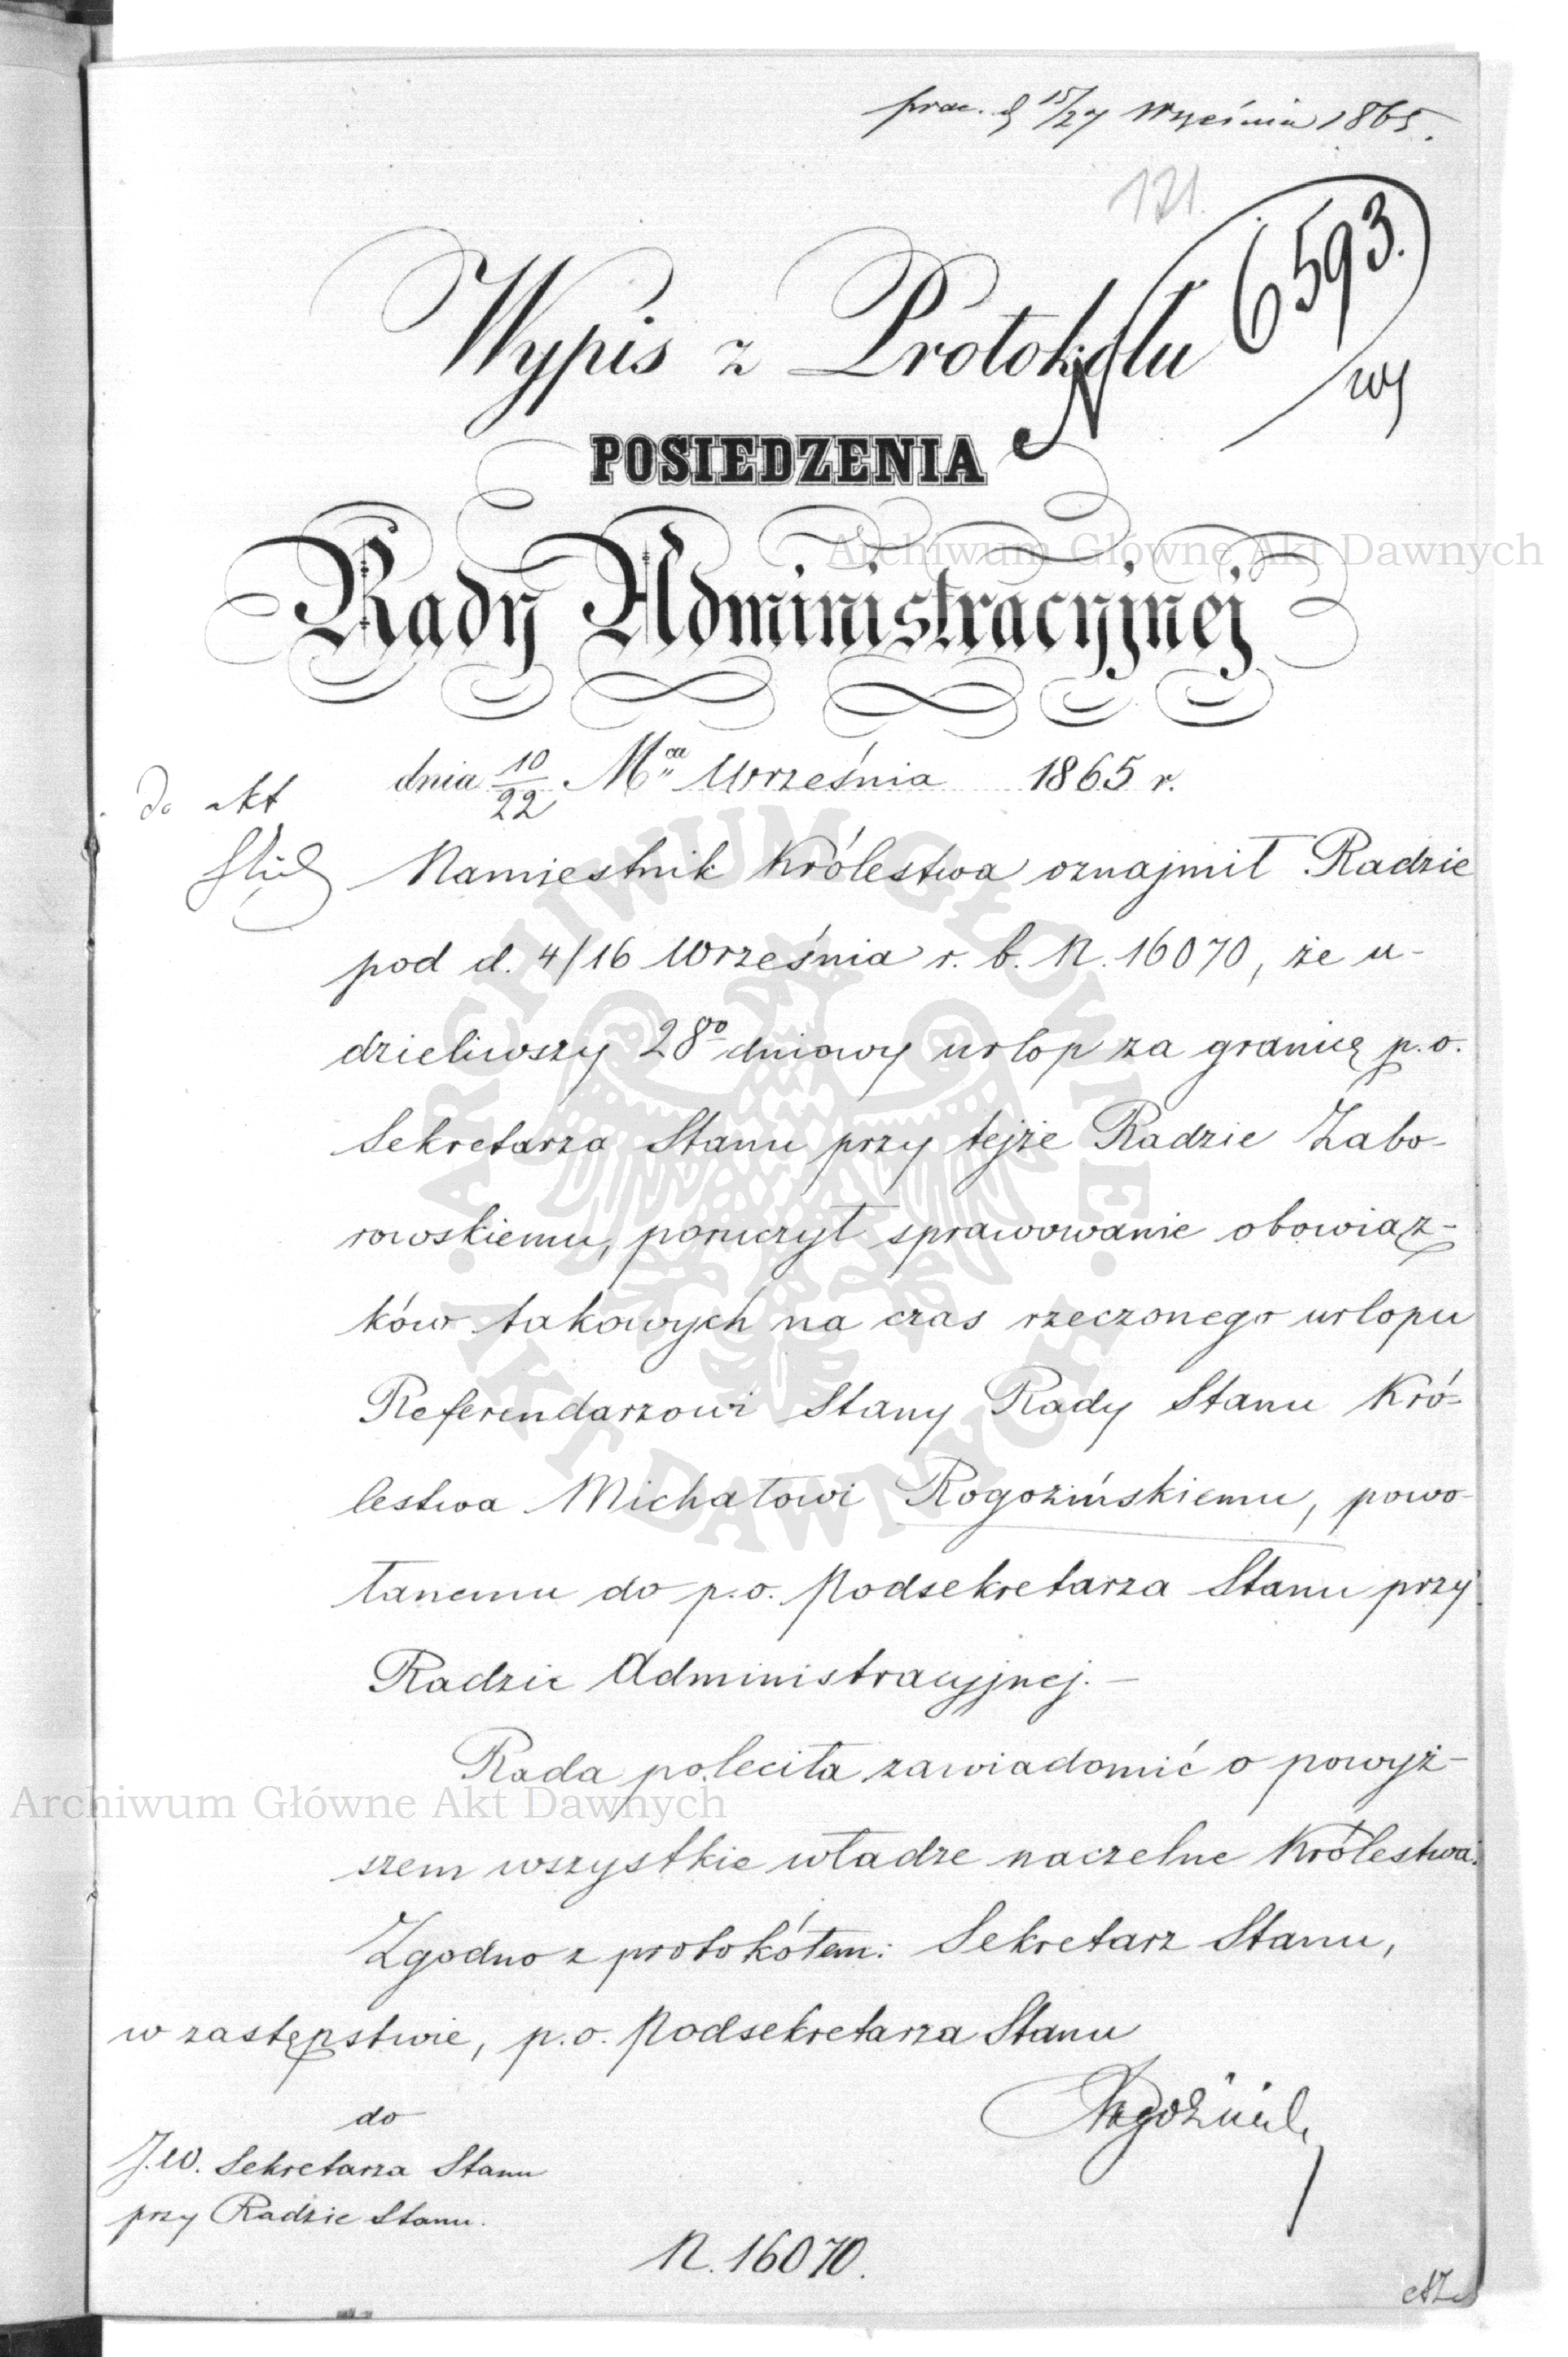 prac. d 15/27 Września 1865.
121.
N 6593.
Wypis z Protokółu
wy
POSIEDZENIA
Archiwum Główne Akt Dawnych
Rady Administracyjnej
dnia 10/22 Mca Września 1865 r.
do akt
Namiestnik Królestwa oznajmił Radzie
pod d. 4/16 Września r. b. N. 16070, że u-
dzieliwszy 28o dniowy urlop za granicę p.o.
Sekretarza Stanu przy tejże Radzie Zabo-
rowskiemu, poruczył sprawowanie obowiąz-
ków takowych na czas rzeczonego urlopu
Referendarzowi Stanu Rady Stanu Kró-
lestwa Michałowi Rogozińskiemu, powo-
łanemu do p.o. Podsekretarza Stanu przy
Radzie Administracyjnej.—
Rada poleciła zawiadomić o powyż-
Archiwum Główne Akt Dawnych
szem wszystkie władze naczelne Królestwa.
Zgodno z protokółem: Sekretarz Stanu,
w zastępstwie, p.o. Podsekretarza Stanu
do
J.W. Sekretarza Stanu
przy Radzie Stanu.
N. 16070.
ARCHIWUM GŁÓWNE AKT DAWNYCH